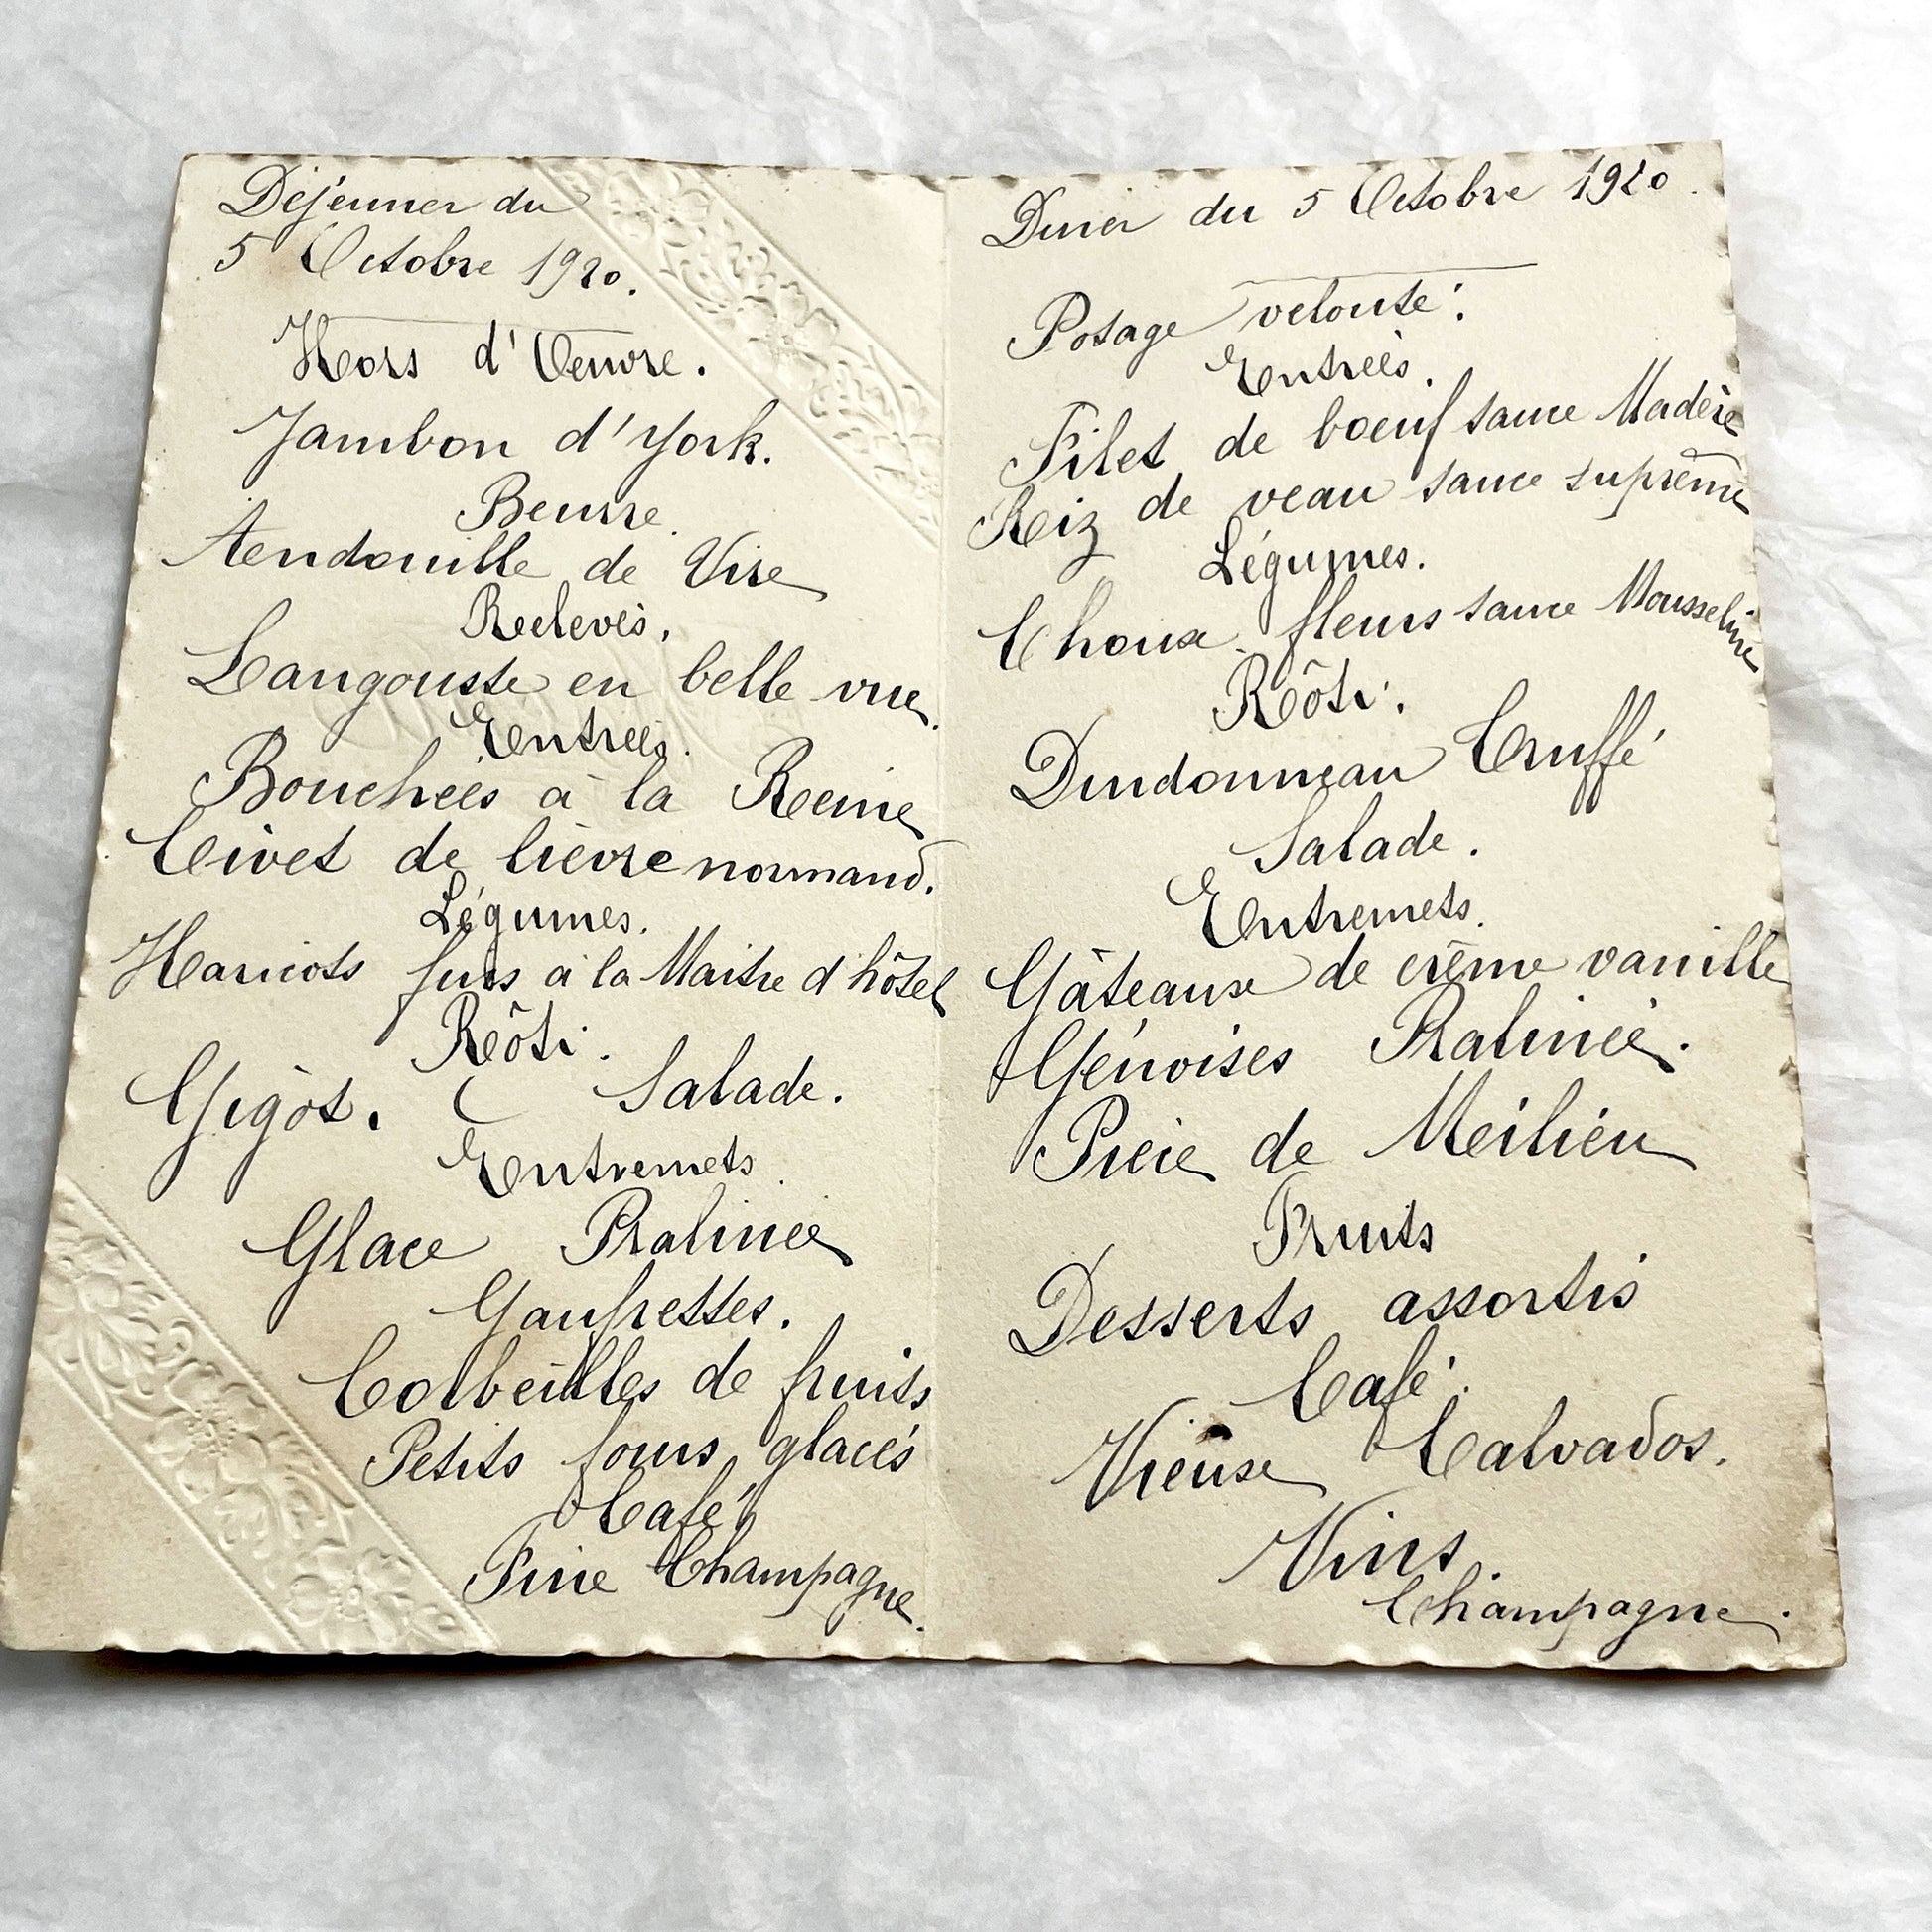 Déjeuner du
5 Octobre 1920.
Hors d'Oeuvre.
Jambon d'York.
Beurre
Andouille de Vire
Relevés.
Langouste en belle vue.
Entrées.
Bouchées à la Reine
Civet de lièvre normand.
Légumes.
Haricots fins à la Maitre d'hôtel
Rôti.
Gigôt. Salade.
Entremets
Glace Pralinée
Gaufrettes.
Corbeilles de fruits
Petits fours glacés
Café
Fine Champagne.
Diner du 5 Octobre 1920.
Potage velouté.
Entrées.
Filet de boeuf sauce Madère
Reiz de veau sauce suprême
Légumes.
Choux-fleurs sauce Mousseline
Rôti.
Dindonneau Truffé
Salade.
Entremets.
Gâteaux de crème vanille
Génoises Pralinée.
Pièce de Meiliéu
Fruits
Desserts assortis
Café.
Vieux Calvados.
Vins.
Champagne.